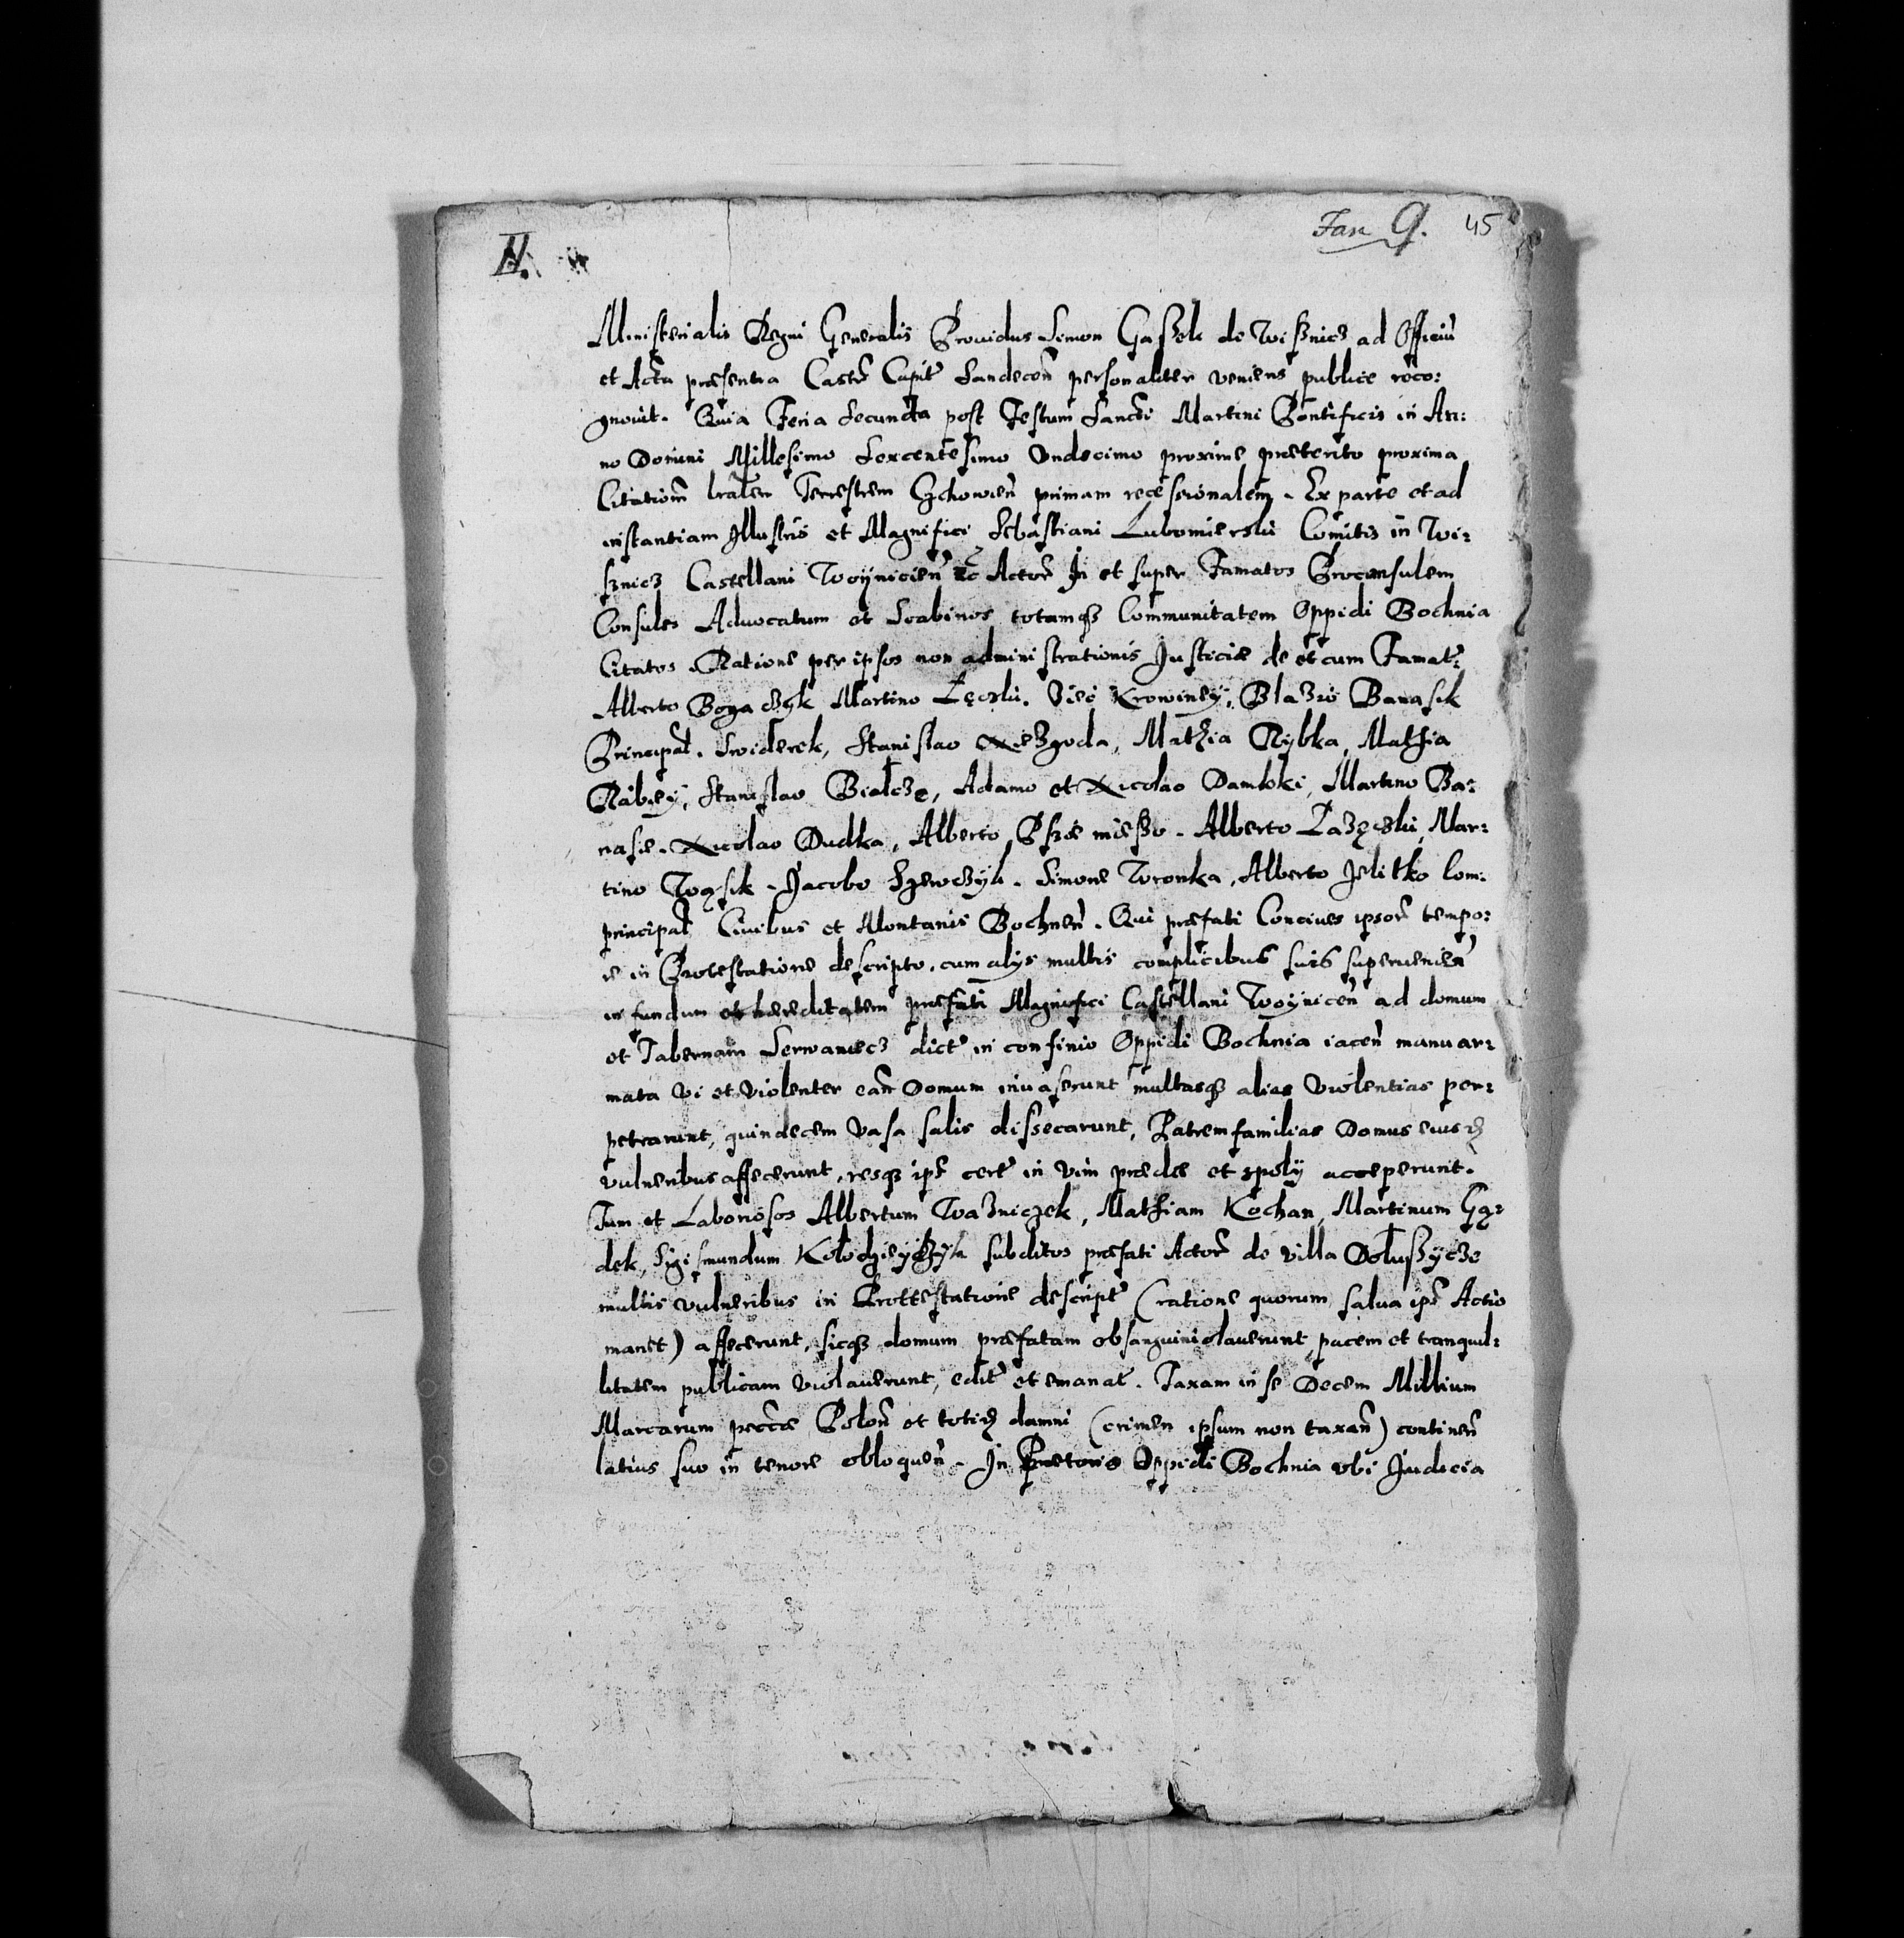 II.
Fan 9. 45
Ministerialis Regni Generalis Prouidus Simon Gaszek de Wisznicz ad Officiũ
et Acta præsentia Castr̃ Capit̃ Sandecen̄ personaliter veniens publice reco:
gnouit. Quia Feria Secunda post Festum Sancti Martini Pontificis in An:
no Domini Millesimo Sexcentesimo Vndecimo proxime præterito proxima
Citationẽ lr̃alem Terrestrem Czchowien̄ primam recessionalem. Ex parte et ad
instantiam Illustris et Magnifici Sebastiani Lubomierski Comitis in Wi:
sznicz Castellani Woÿnicien̄ etc̃ Actor̃ In et super Famatos Proconsulem
Consules Aduocatum et Scabinos totamqʒ Communitatem Oppidi Bochnia
Citatos. Ratione per ipsos non administrationis Justiciæ de et cum Famat̃:
Alberto Bogaczyk Martino Łęczki. Krowiney, Blazio Banasik
Principal̃. Swiderek, Stanislao Niezgoda, Mathia Rybka, Mathia
Rabiey, Stanislao Białcze, Adamo et Nicolao Dambki, Martino Ba:
nasie. Nicolao Dudka, Alberto Alberto Łazęczki, Mar:
tino Wąsik. Jacobo Szewczyk. Simone Wronka, Alberto Jelitko Com:
principal̃ Ciuibus et Montanis Bochnen̄. Qui præfati Conciues ipsor̃ tempo:
re in Protestatione descripto, cum alÿs multis complicibus suis superuenien̄
in fundum et hæreditatem præfati Magnifici Castellani Woÿnicen̄ ad domum
et Tabernam Serwaniecz dict̃ in confinio Oppidi Bochnia iacen̄ manu ar:
mata vi et violenter eañ Domum inuaserunt multasqʒ alias violentias per:
petrarunt, quindecem vasa salis dissecarunt, Patremfamilias Domus eiusd̃
vulneribus affecerunt, resqʒ ips̃ cert̃ in vim prædæ et spolÿ acceperunt.
Tum et Laboriosos Albertum Wazniczek, Mathiam Kochan, Martinum Gą:
dek, Sigismundum Kołodzieyczyk subditos præfati Actor̃ de villa Dołuszÿcze
multis vulneribus in Prottestatione descript̃ (ratione quorum salua ips̃ Actio
manet) affecerunt, sicqʒ domum præfatam obsanguiniolauerunt, pacem et tranquil:
litatem publicam violauerunt, edit̃ et emanat̃. Taxam in se Decem Millium
Marcarum pecc̃æ Polon̄ et totid̃ damni (crimen ipsum non taxan̄) continen̄
latius suo in tenore obloquen̄. In Prætorio Oppidi Bochnia vbi Judicia